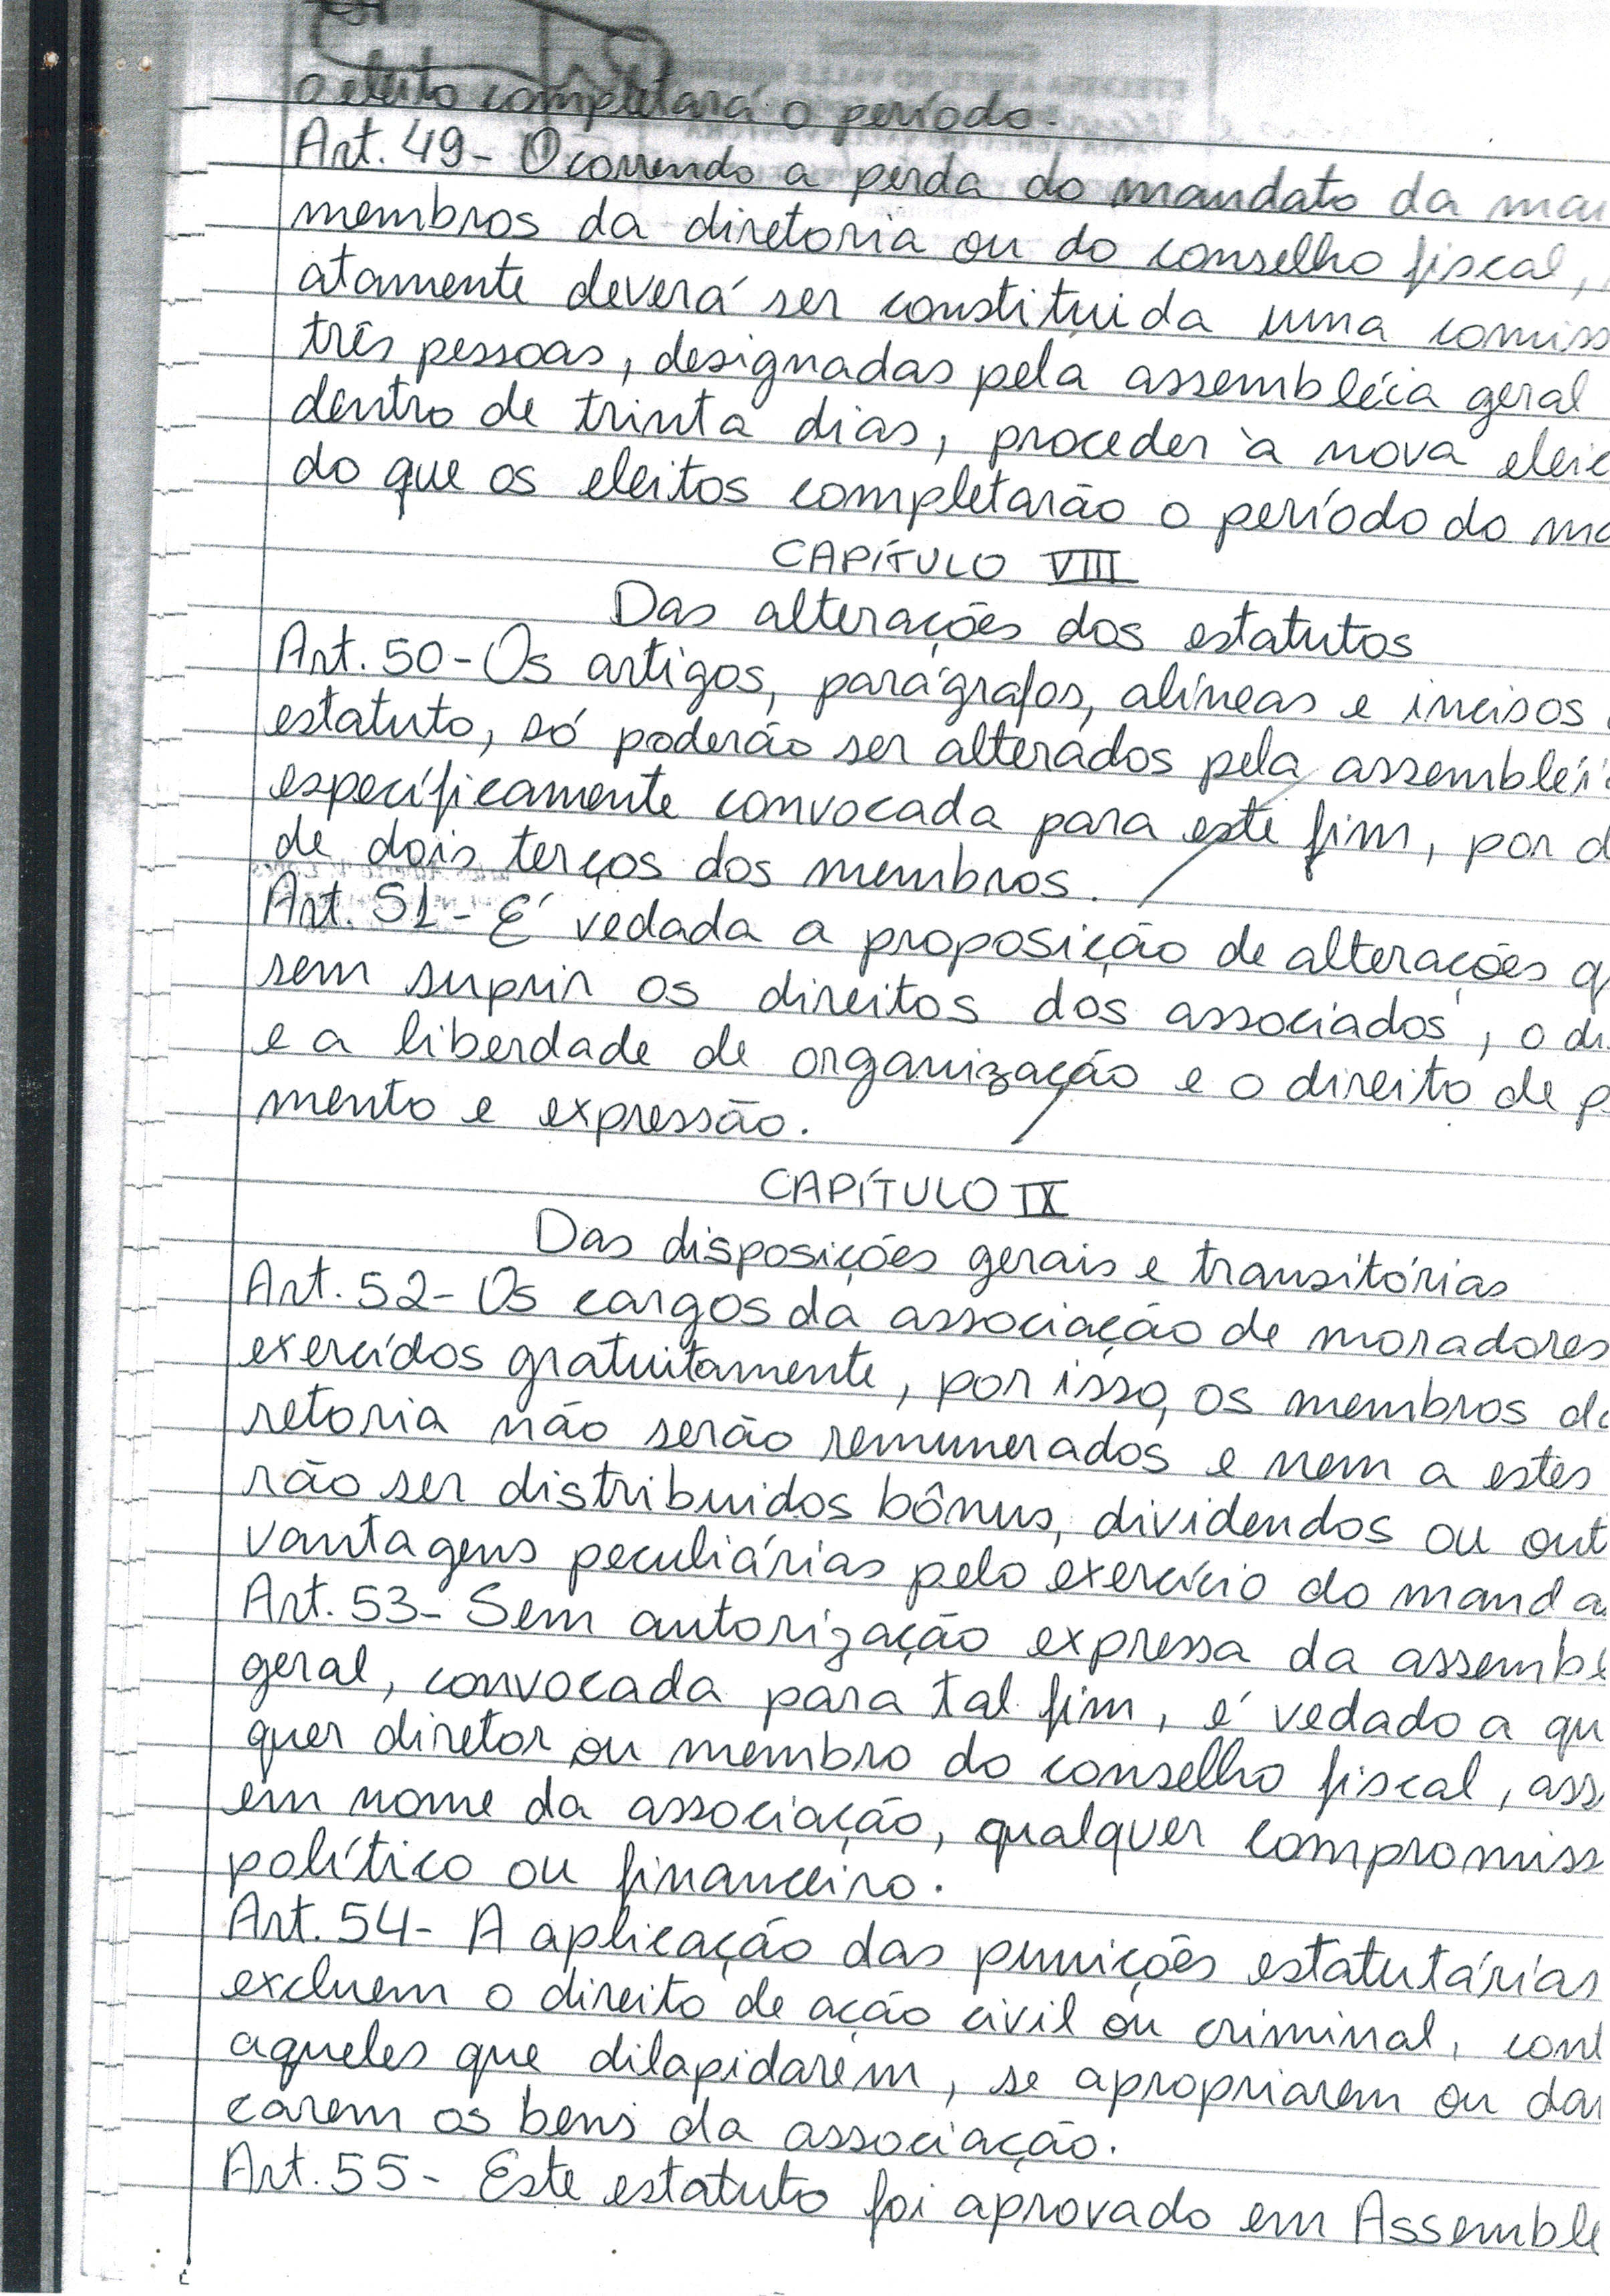 o eleito completará o período.
Art. 49- Ocorrendo a perda do mandato da mai
membros da diretoria ou do conselho fiscal,
atamente deverá ser constituida uma comiss
três pessoas, designadas pela assembléia geral
dentro de trinta dias, proceder à nova eleiç
do que os eleitos completarão o período do ma
CAPÍTULO VIII
Das alterações dos estatutos
Art. 50- Os artigos, parágrafos, alíneas e incisos
estatuto, só poderão ser alterados pela assembléi
específicamente convocada para este fim, por d
de dois terços dos membros.
Art. 51- É vedada a proposição de alterações q
sem suprir os direitos dos associados, o di
e a liberdade de organização e o direito de p
mento e expressão.
CAPÍTULO IX
Das disposições gerais e transitórias
Art. 52- Os cargos da associação de moradores
exercidos gratuitamente, por isso, os membros da
retoria não serão remunerados e nem a estes
rão ser distribuidos bônus, dividendos ou out
vantagens peculiárias pelo exercício do manda
Art. 53- Sem autorização expressa da assemblé
geral, convocada para tal fim, é vedado a qu
quer diretor ou membro do conselho fiscal, ass
em nome da associação, qualquer compromiss
político ou financeiro.
Art. 54- A aplicação das punições estatutárias
excluem o direito de ação civil ou criminal, cont
aqueles que dilapidarem, se apropriarem ou dan
carem os bens da associação.
Art. 55- Este estatuto foi aprovado em Assemble